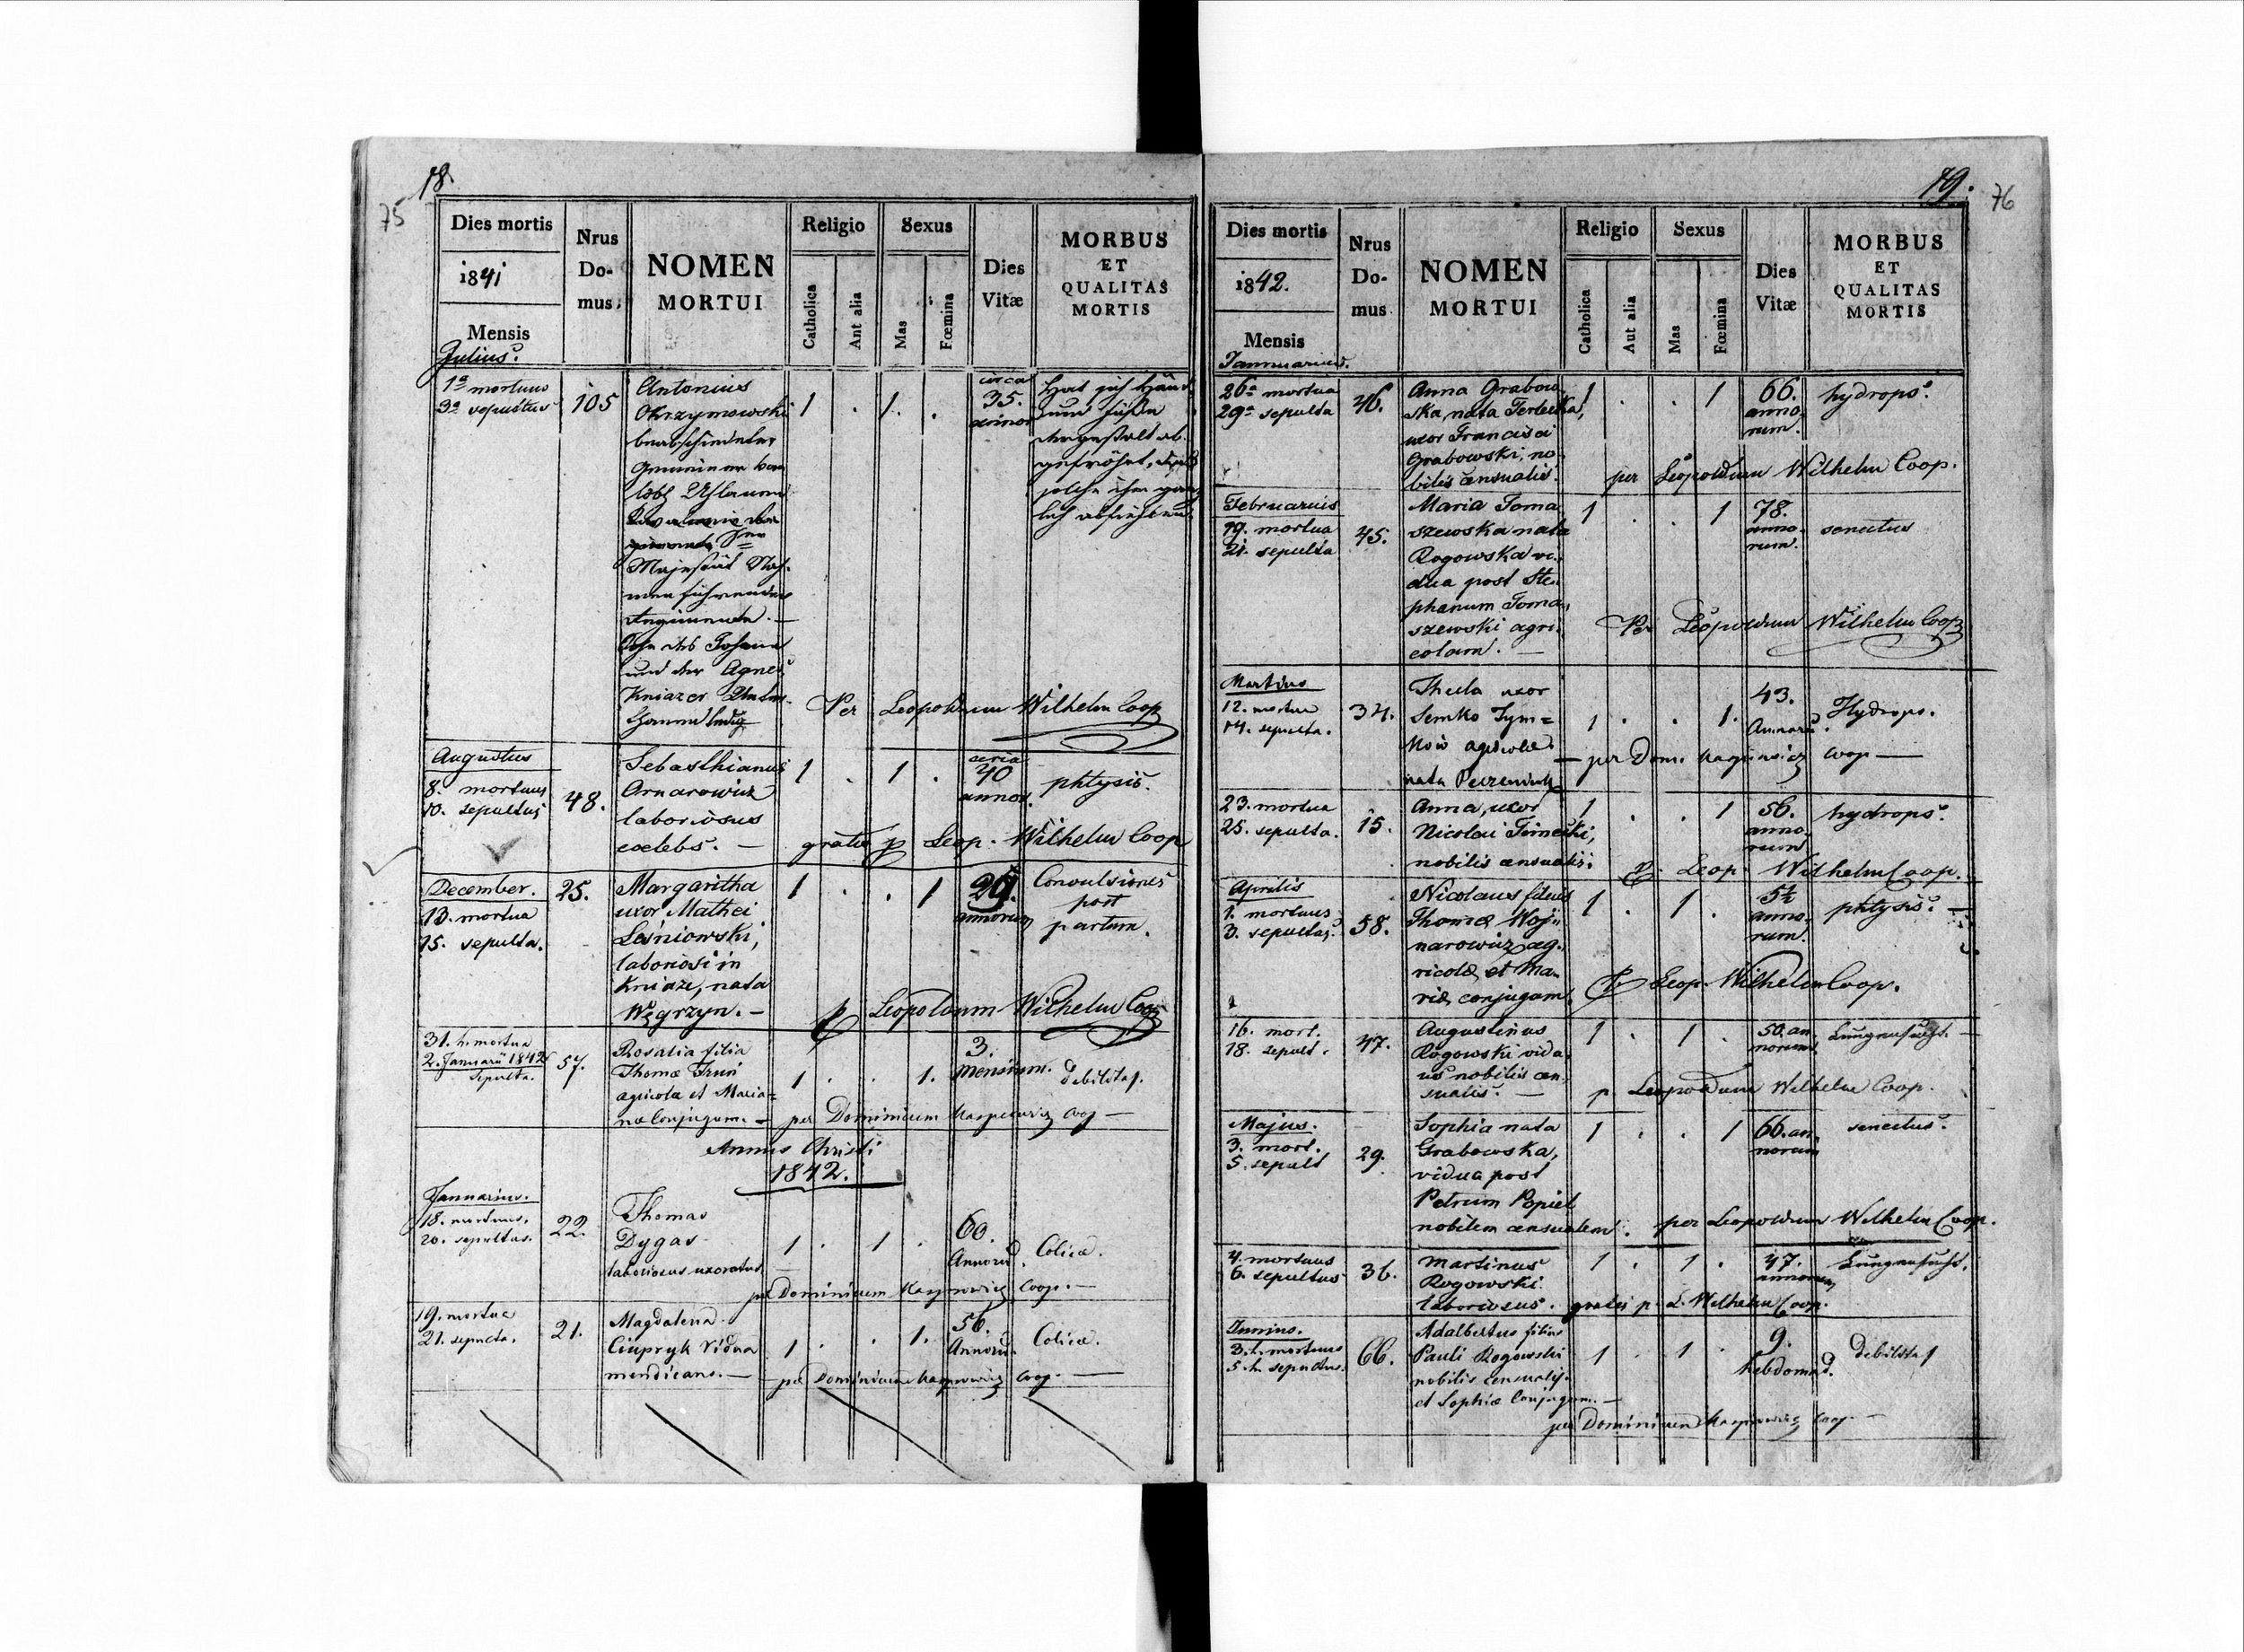 18.
75
Dies mortis
1841
Mensis
Julius.
Nrus
Do-
mus
NOMEN
MORTUI
Religio
Catholica
Aut alia
Sexus
Mas
Fœmina
Dies
Vitæ
MORBUS
ET
QUALITAS
MORTIS
1a mortuus
3a sepultus
105
Antonius
Okrzymowski
Gemeiner
Majestät
Agnes
Kniazer
1 . 1. .
circa
35.
annor
Per Leopoldum Wilhelm Coop
Augustus
8. mortuus
10. sepultus
48.
Sebasthianus
Arnarowicz
laboriosus
coelebs. —
1 . 1 .
circa
40
annor.
phtysis.
gratis p Leop. Wilhelm Coop
December.
13. mortua
15. sepulta.
25.
Margaritha
uxor Mathei
Leśniowski,
laboriosi in
Kniaze, nata
Węgrzyn. —
1 . . 1
29.
annorum
Convulsiones
post
partum.
p Leopoldum Wilhelm Coop
31. h. mortua
2. Januarii 1842
sepulta.
57.
Rosalia filia
Thomæ
agricolæ et Maria=
næ Conjugum. —
1 . . 1.
3.
Mensium.
debilitas.
per Dominicum Kasprowicz Coop —
Annus Christi
1842.
Januarius.
18. mortuus.
20. sepultus.
22.
Thomas
Dygas
laboriosus uxoratus
1 . 1 .
60.
Annorũ.
Colica.
per Dominicum Kasprowicz Coop. —
19. mortua
21. sepulta.
21.
Magdalena
Ciupryk Vidua
mendicans. —
1 . . 1.
56.
Annorũ.
Colica.
per Dominicum Kasprowicz Coop. —
19.
76
Dies mortis
1842.
Mensis
Januarius.
Nrus
Do-
mus
NOMEN
MORTUI
Religio
Catholica
Aut alia
Sexus
Mas
Fœmina
Dies
Vitæ
MORBUS
ET
QUALITAS
MORTIS
26a mortua
29a sepulta
46.
Anna Grabow-
ska, nata Terlecka,
uxor Francisci
Grabowski, no-
bilis censualis.
1 . . 1
66.
anno-
rum.
hydrops.
per Leopoldum Wilhelm Coop.
Februarius
19. mortua
21. sepulta
45.
Maria Toma
szewska nata
Rogowska vi-
dua post Ste-
phanum Toma-
szewski agri-
colam. —
1 . . 1
78.
anno-
rum.
senectus
Per Leopoldum Wilhelm Coop
Martius
12. mortua
14. sepulta.
34.
Thecla uxor
Semko Tym=
ków agricolæ
nata
1 . . 1.
43.
Annorũ.
Hydrops.
— per Dom. Kasprowicz Coop —
23. mortua
25. sepulta.
15.
Anna, uxor
Nicolai
nobilis censualis.
1 . . 1
56.
anno-
rum
hydrops.
p. Leop. Wilhelm Coop.
Aprilis
1. mortuus
3. sepultus.
58.
Nicolaus filius
Thomæ Woj-
narowicz ag-
ricolæ et Ma-
riæ conjugum.
1 . 1 .
5½
anno-
rum.
phtysis. —
p Leop. Wilhelm Coop.
16. mort.
18. sepult.
47.
Augustinus
Rogowski vidu-
us nobilis cen-
sualis. —
1 . 1 .
50. an-
norum
Lungensucht. —
p. Leopoldum Wilhelm Coop.
Majus.
3. mort.
5. sepult
29.
Sophia nata
Grabowska,
vidua post
Petrum Popiel
nobilem censualem.
1 . . 1
66. an-
norum
senectus.
per Leopoldum Wilhelm Coop.
4. mortuus
6. sepultus
36.
Martinus
Rogowski
laboriosus.
1 . 1 .
47.
annorum
Lungensucht.
gratis p. L. Wilhelm Coop.
Junius.
3. h. mortuus
5. h. sepultus.
66.
Adalbertus filius
Pauli Rogowski
nobilis censualis
et Sophiæ Conjugum. —
1 . 1 .
9.
hebdomad.
debilitas
per Dominicum Kasprowicz Coop. —